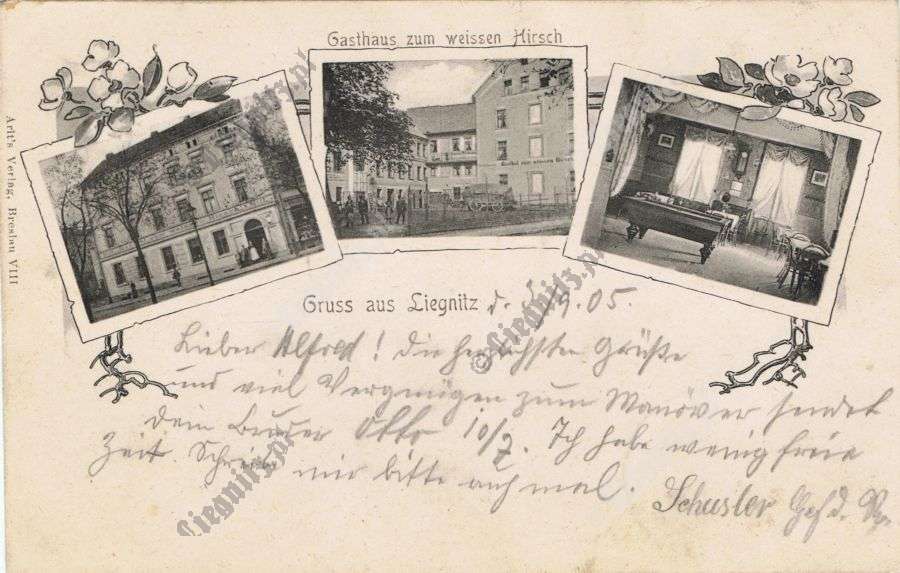 Gasthaus zum weissen Hirsch
Arlt's Verlag, Breslau VIII
Gruss aus Liegnitz d. 9.05.
Lieber Alfred! Die herzlichsten Grüße
und viel Vergnügen zum Manöver sendet
dein Bruder Otto 10/7. Ich habe wenig freie
Zeit. Schreibe mir bitte auch mal.
Schuster Gefd. Rs.
©Liegnitz.pl
Liegnitz.pl
Liegnitz.pl